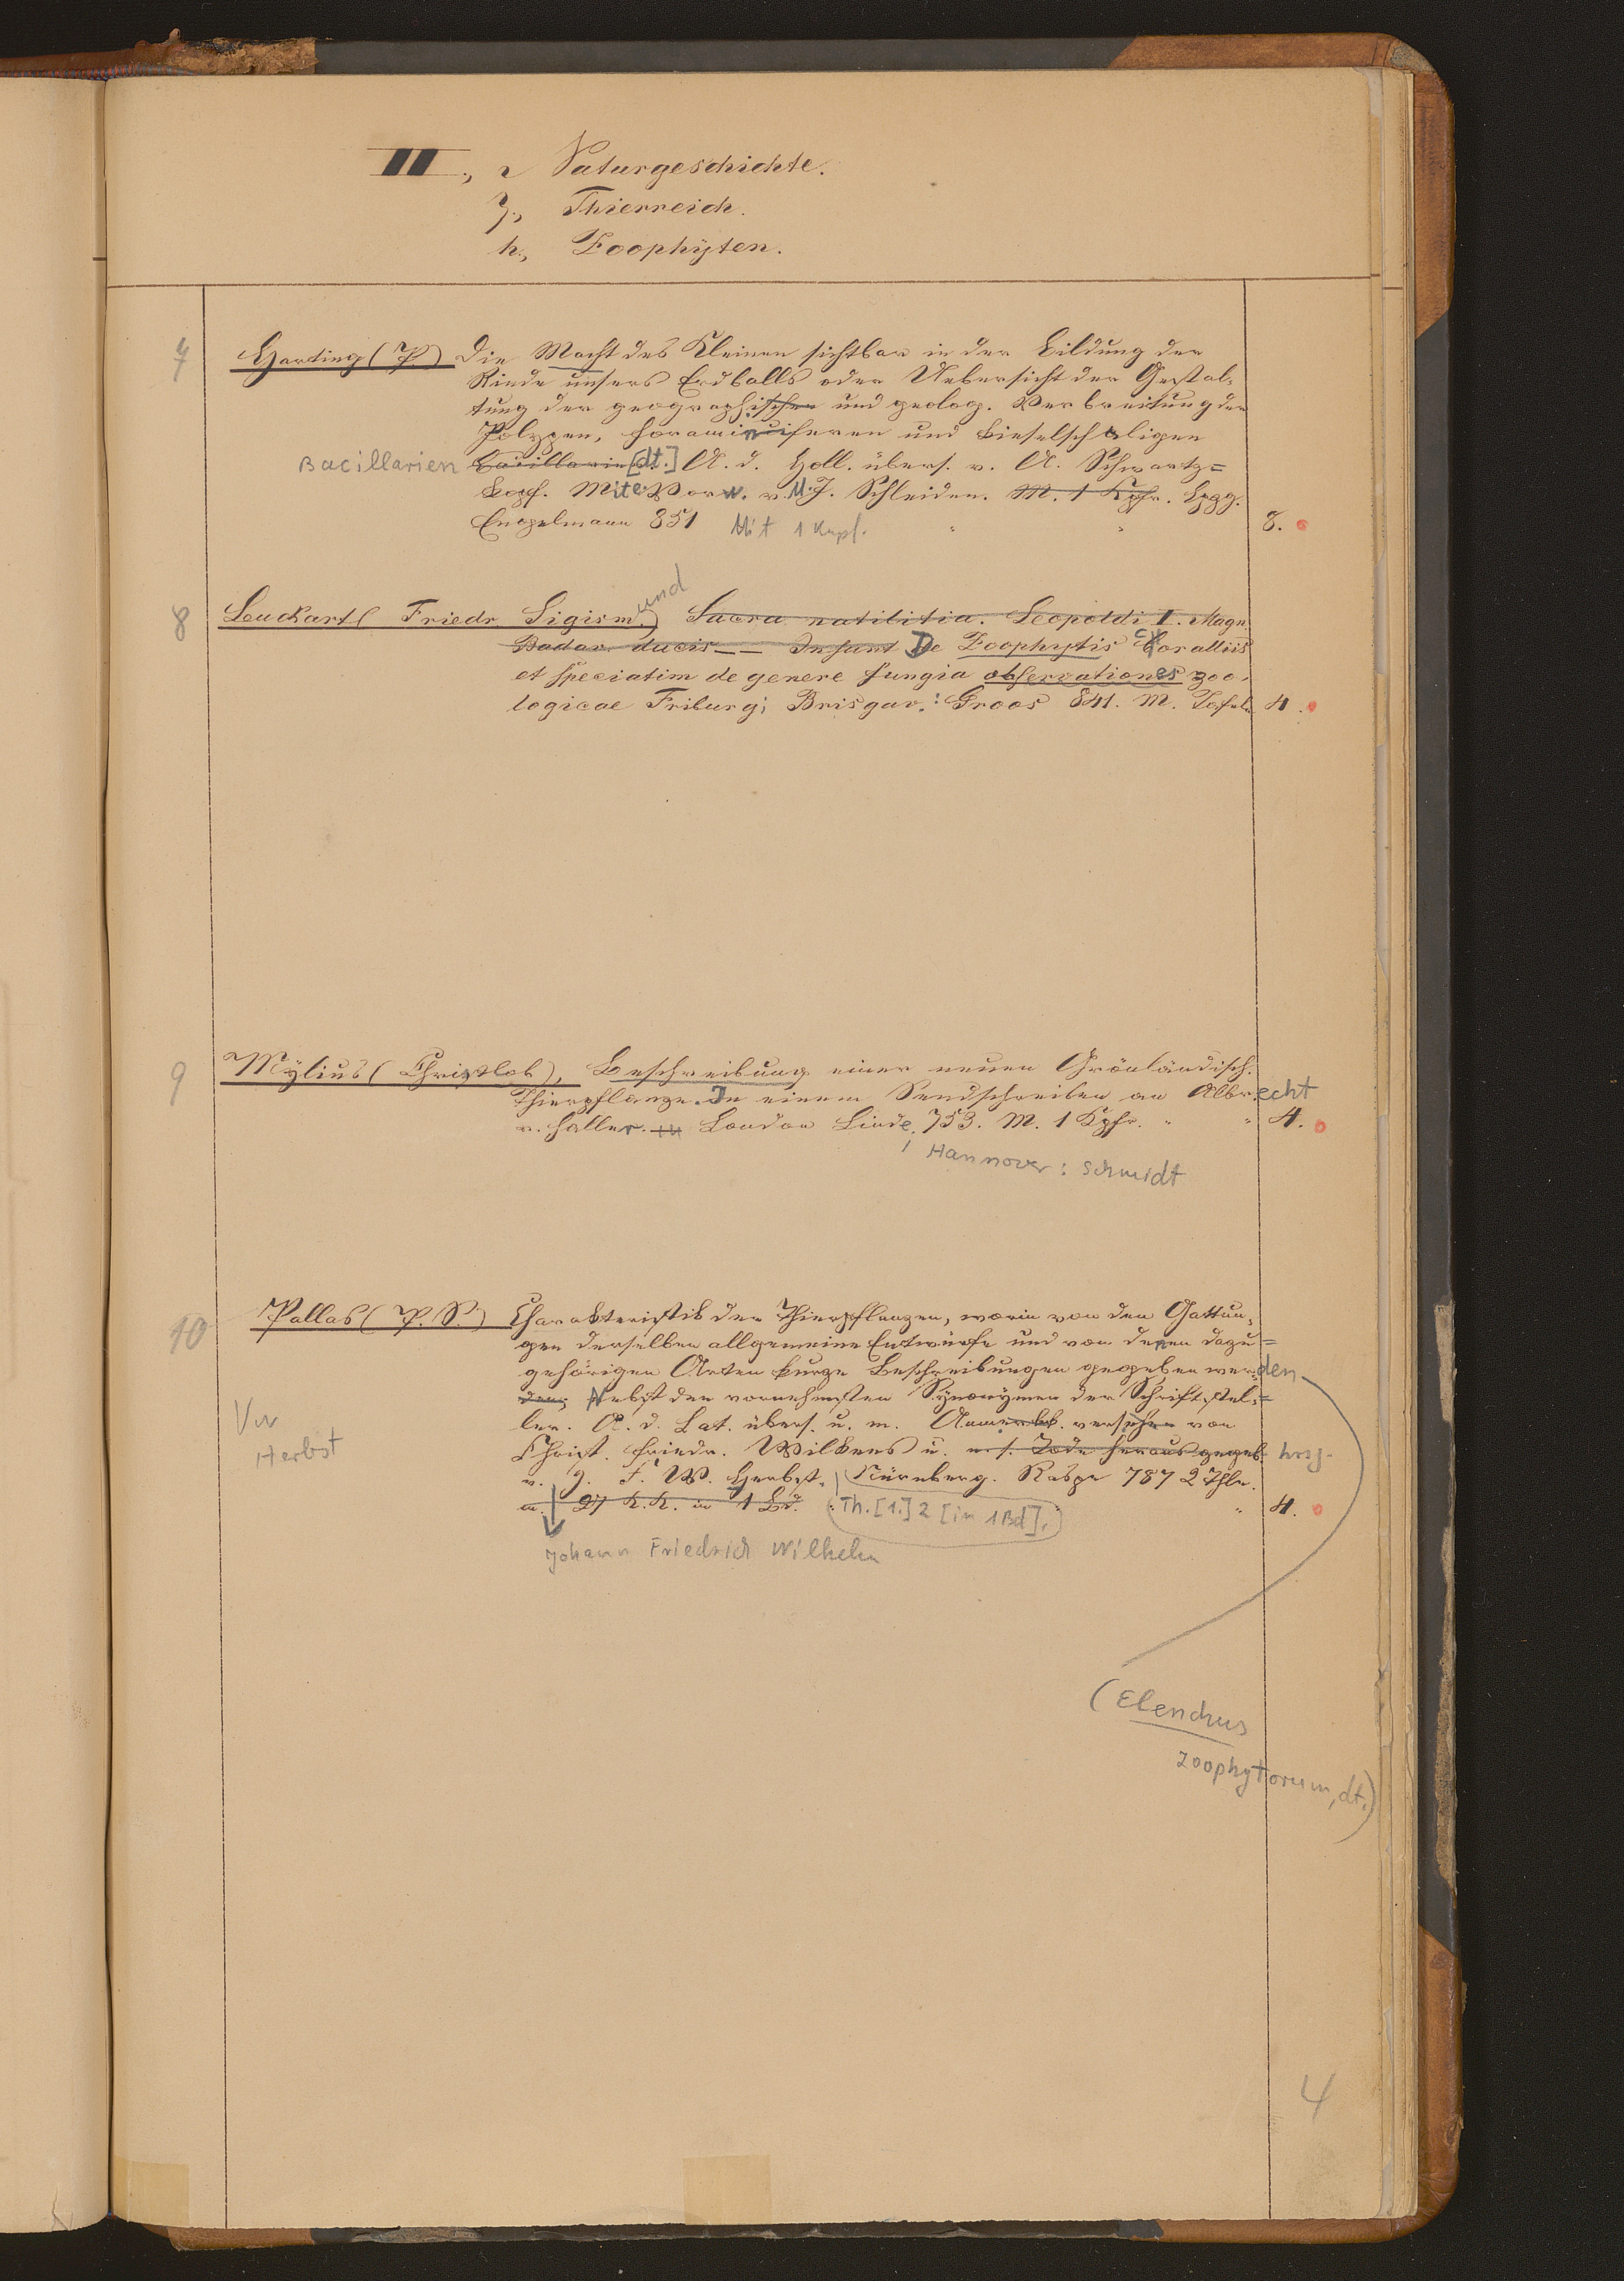 II., 2 Naturgeschichte.
7., Thierreich.
h., Zoophÿten.
7 Harting (P.) Die Macht des Kleinen sichtbar in der Bildung der
Rinde unsers Erdballs oder Uebersicht der Gestal-
tung der geographischen und geolog. Verbreitung der
Polypen, Foraminiferen und kieselschaligen
Bacillarien Bacillarien [dt.] A. d. Holl. übers. v. A. Schwartz=
kopf. Mit e. Vorw. v. M. J. Schleiden. M. 1 Kpfr. Lpzg.
Engelmann 851 Mit 1 Kupf. " " 8.
und
8 Leuckart( Friedr Sigism.) Sacra natilitia. Leopoldi I. Magn.
Badar. ducis – – Insunt De Zoophytis coralliis
et speciatim de genere fungia observationes zoo-
logicae Friburgi Brisgav.: Groos 841. M. Tafeln 4.
9 Mÿlius ( Christlob), Beschreibung einer neuen Grönländisch.
Thierpflanze. In einem Sendschreiben an Albrecht
v. Haller. in London Linde, 753. M. 1 Kpfr. " " 4.
, Hannover : Schmidt
10 Pallas ( P. S.) Charakteristik der Thierpflanzen, worin von den Gattun-
gen derselben allgemeine Entwürfe und von denen dazu=
gehörigen Arten kurze Beschreibungen gegeben werden
den, Nebst den vornehmsten Synonÿmen der Schriftstel-=
ler. A. d. Lat. übers. u. m. Anmerkk. versehen von
Christ. Friedr. Wilkens u. n. s. Tode herausgegeb. hrsg.
v. J. F. W. Herbst. Nürnberg. Raspe 787 2 Thle.
m. 27 K.K. in 1 Bd. Th. [1.] 2 [in 1 Bd]. " 4.
Vw
Herbst
Johann Friedrich Wilhelm
(Elenchus
zoophytorum, dt.)
4